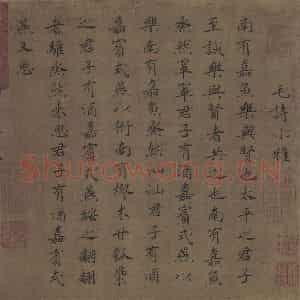 毛詩小雅
南有嘉魚樂與賢也太平之君子
至誠樂與賢者共之也南有嘉魚
烝然罩罩君子有酒嘉賓式燕以
樂南有嘉魚烝然汕汕君子有酒
嘉賓式燕以衎南有樛木甘瓠纍
之君子有酒嘉賓式燕綏之翩翩
者鵻烝然來思君子有酒嘉賓式
燕又思
Shufawang.CN